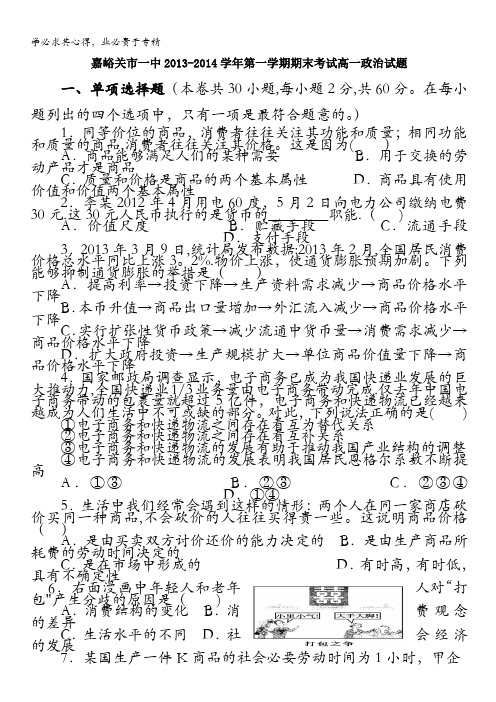 学必求其心得，业必贵于专精
嘉峪关市一中2013-2014学年第一学期期末考试高一政治试题
一、单项选择题（本卷共30小题,每小题2分,共60分。在每小
题列出的四个选项中，只有一项是最符合题意的。）
1．同等价位的商品，消费者往往关注其功能和质量；相同功能
和质量的商品,消费者往往关注其价格。这是因为(　　)
A．商品能够满足人们的某种需要　　B．用于交换的劳
动产品才是商品
C．质量和价格是商品的两个基本属性　　D．商品具有使用
价值和价值两个基本属性
2．李某2012年4月用电60度，5月2日向电力公司缴纳电费
30元.这30元人民币执行的是货币的________职能.（　　）
A．价值尺度　　B．贮藏手段　　C．流通手段
D．支付手段
3．2013年3月9日,统计局发布数据:2013年2月,全国居民消费
价格总水平同比上涨3。2%.物价上涨，使通货膨胀预期加剧。下列
能够抑制通货膨胀的举措是（　　）
A．提高利率→投资下降→生产资料需求减少→商品价格水平
下降
B.本币升值→商品出口量增加→外汇流入减少→商品价格水平
下降
C.实行扩张性货币政策→减少流通中货币量→消费需求减少→
商品价格水平下降
D．扩大政府投资→生产规模扩大→单位商品价值量下降→商
品价格水平下降
4．国家邮政局调查显示，电子商务已成为我国快递业发展的巨
大推动力,全国快递业1/3业务量由电子商务带动完成,仅去年中国电
子商务带动的包裹量就超过5亿件，电子商务和快递物流已经越来
越成为人们生活中不可或缺的部分。对此，下列说法正确的是(　　)
①电子商务和快递物流之间存在着互为替代关系
②电子商务和快递物流之间存在着互补关系
③电子商务和快递物流的发展有助于推动我国产业结构的调整
④电子商务和快递物流的发展表明我国居民恩格尔系数不断提
高
A．①③　　B．②③　　C．②③④
D．①④
5．生活中我们经常会遇到这样的情形：两个人在同一家商店砍
价买同一种商品,不会砍价的人往往买得贵一些。这说明商品价格
（　　）
A．是由买卖双方讨价还价的能力决定的　B．是由生产商品所
耗费的劳动时间决定的
C．是在市场中形成的　　D．有时高，有时低，
具有不确定性
6．右面漫画中年轻人和老年人对“打
包”产生分歧的原因是（　　）
A．消费结构的变化　B．消费观念
的差异
C．生活水平的不同　D．社会经济
的发展
小里小气!
大手大脚!
打包之争
7．某国生产一件K商品的社会必要劳动时间为1小时，甲企